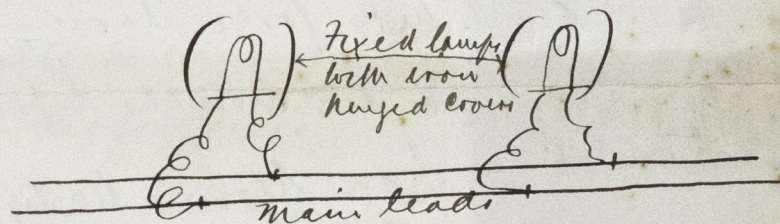 Fixed lamps
with iron
hinged covers
main leads